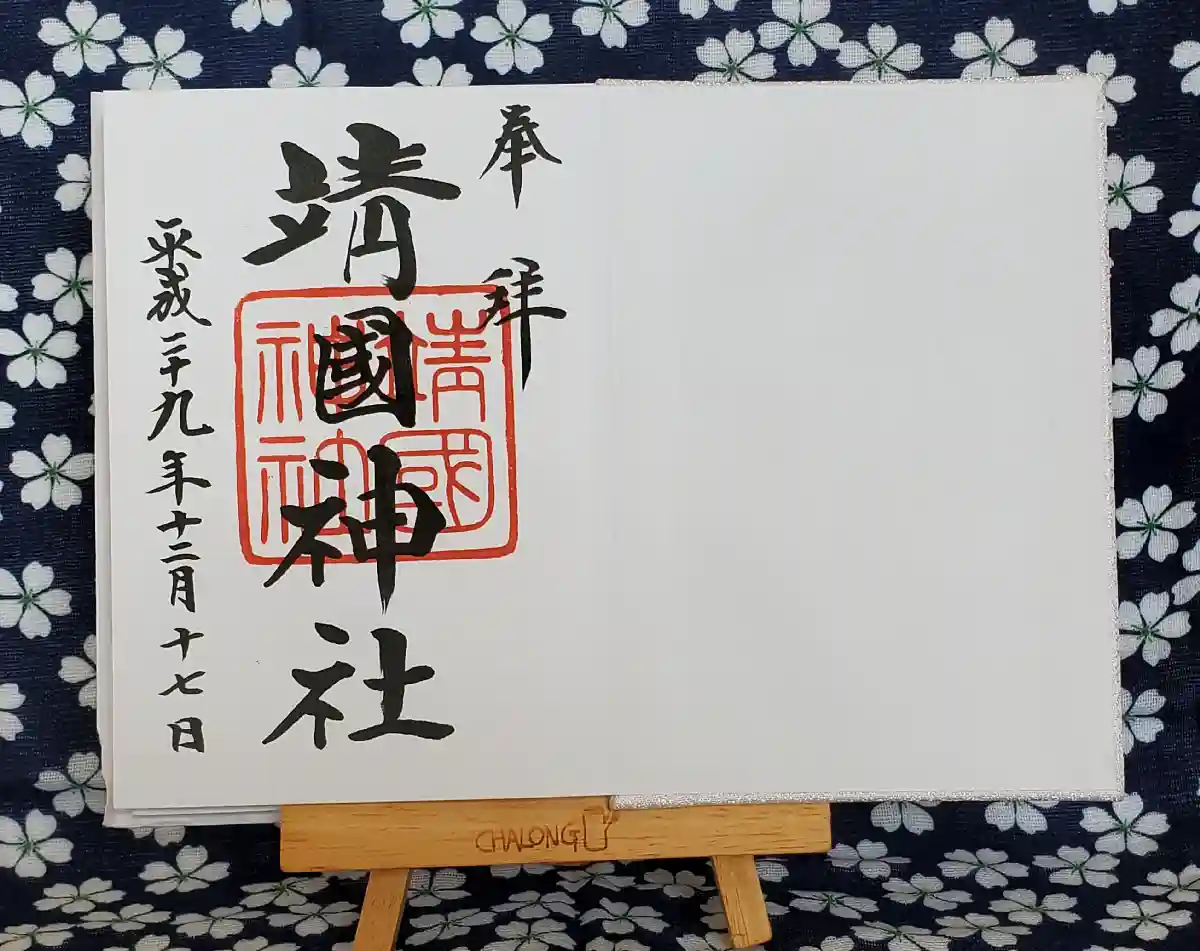 奉拝
靖國神社
靖國
神社
平成二十九年十二月十七日
CHALONG